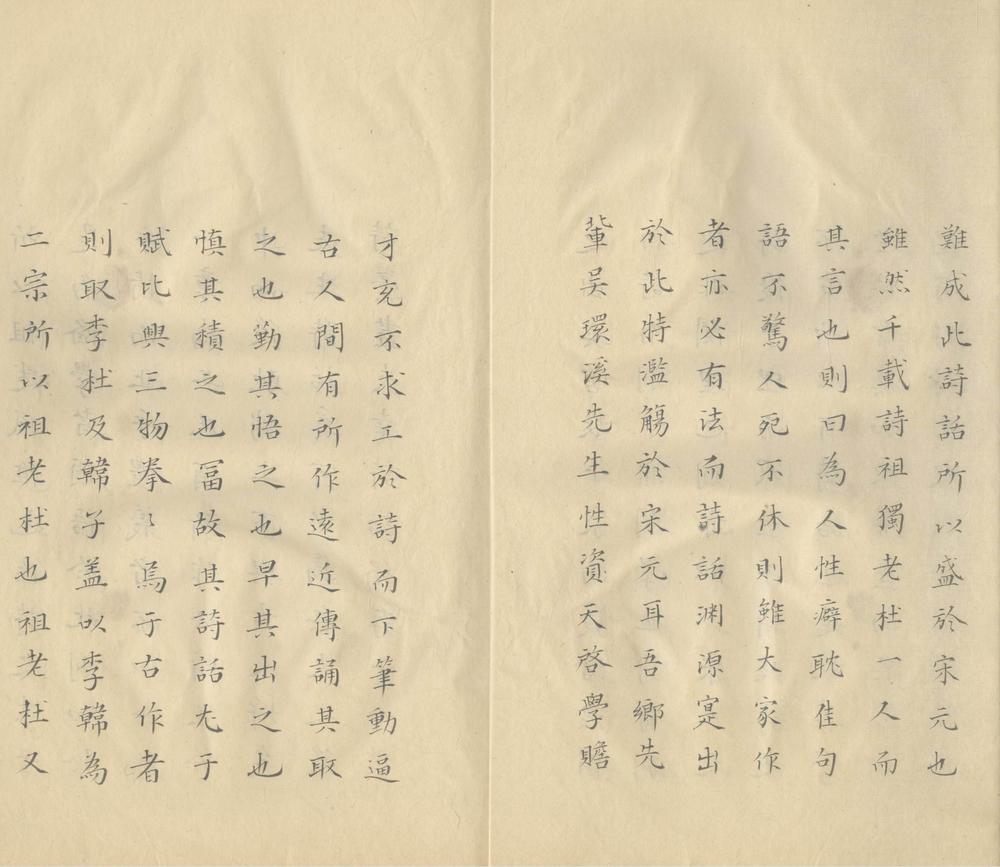 難成此詩話所以盛於宋元也
雖然千載詩祖獨老杜一人而
其言也則曰為人性癖耽佳句
語不驚人死不休則雖大家作
者亦必有法而詩話渊源寔出
於此特濫觴於宋元耳吾鄉先
軰吴環溪先生性資天啓學贍
才充不求工於詩而下筆動逼
古人間有所作遠近傳誦其取
之也勤其悟之也早其出之也
慎其積之也冨故其詩話尤于
賦比興三物拳〻焉于古作者
則取李杜及韓子盖以李韓為
二宗所以祖老杜也祖老杜又